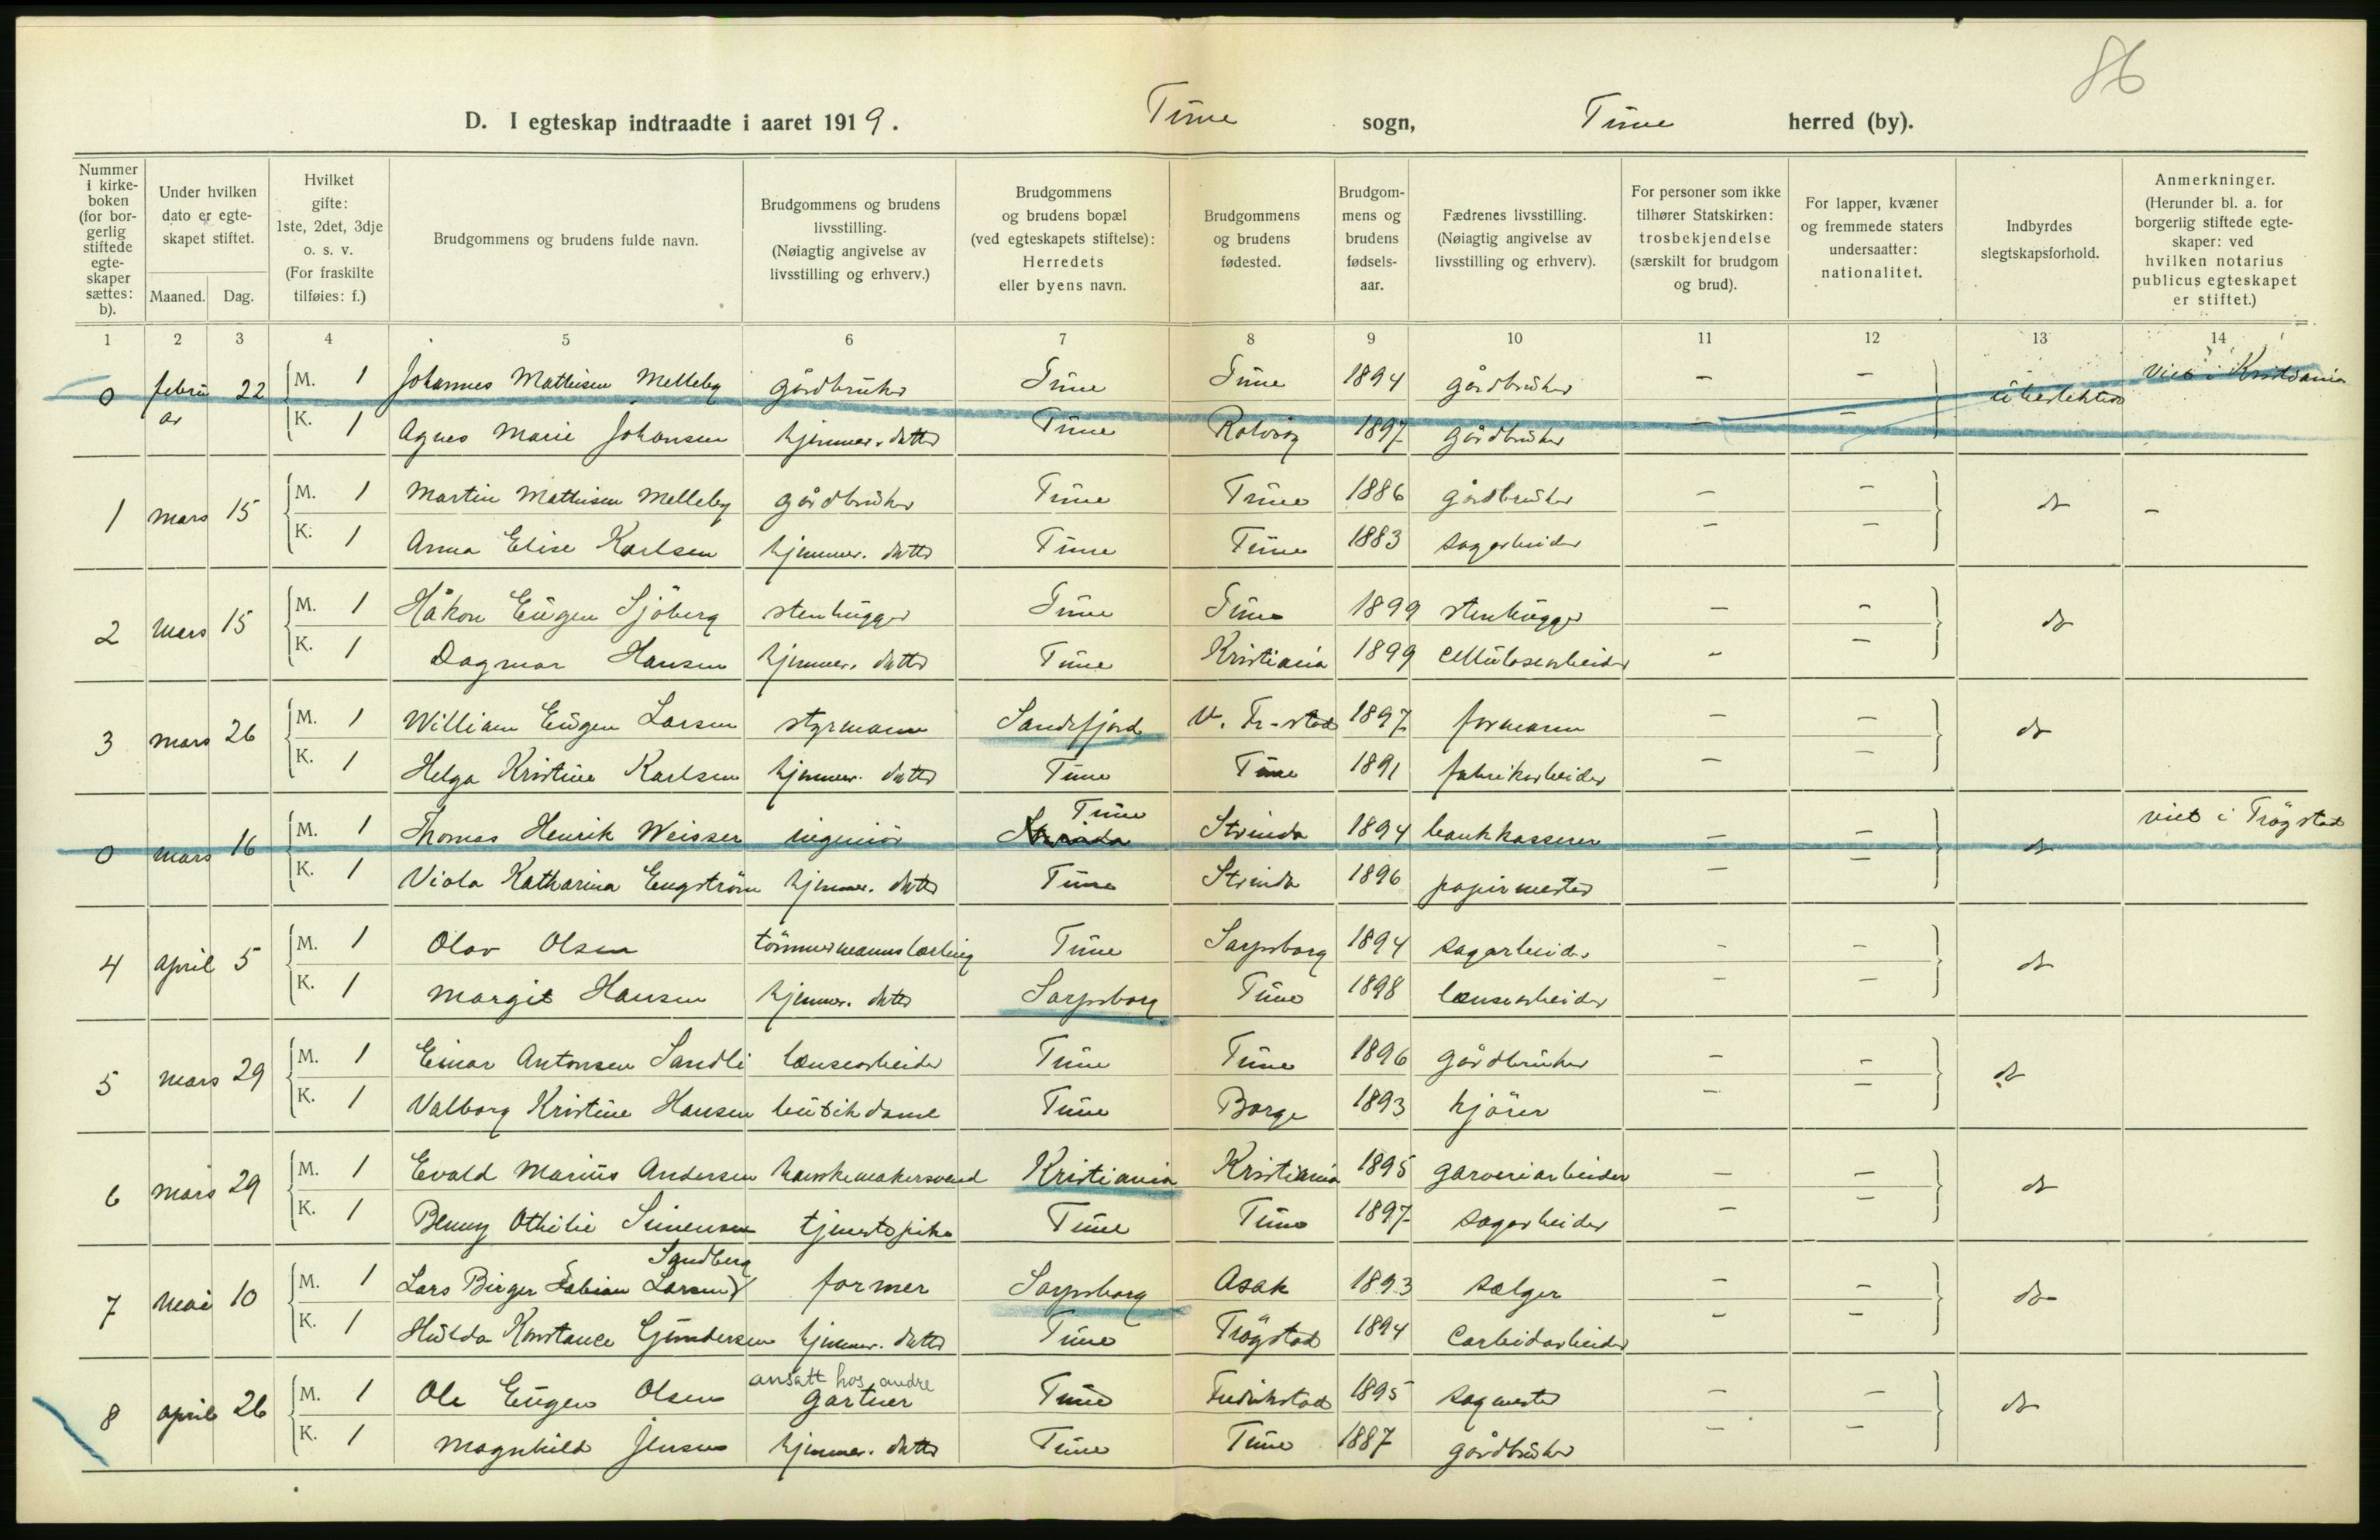 86
D. I egteskap indtraadte i aaret 1919. Tune sogn, Tune herred (by).
Nummer i kirkeboken (for borgerlig stiftede egteskaper sættes: b).
Under hvilken dato er egteskapet stiftet.
Maaned. Dag.
Hvilket gifte: 1ste, 2det, 3dje o. s. v. (For fraskilte tilføies: f.)
Brudgommens og brudens fulde navn.
Brudgommens og brudens livsstilling. (Nøiagtig angivelse av livsstilling og erhverv.)
Brudgommens og brudens bopæl (ved egteskapets stiftelse): Herredets eller byens navn.
Brudgommens og brudens fødested.
Brudgommens og brudens fødselsaar.
Fædrenes livsstilling. (Nøiagtig angivelse av livsstilling og erhverv).
For personer som ikke tilhører Statskirken: trosbekjendelse (særskilt for brudgom og brud).
For lapper, kvæner og fremmede staters undersaatter: nationalitet.
Indbyrdes slegtskapsforhold.
Anmerkninger. (Herunder bl. a. for borgerlig stiftede egteskaper: ved hvilken notarius publicus egteskapet er stiftet.)
1 2 3 4 5 6 7 8 9 10 11 12 13 14
0 februar 22 M. 1 Johannes Mathisen Melleby gårdbruker Tune Tune 1894 gårdbruker – – ubeslektet Viet i Kristiania
K. 1 Agnes Marie Johansen hjemmev. datter Tune Rolvsøy 1897 gårdbruker – –
1 mars 15 M. 1 Martin Mathisen Melleby gårdbruker Tune Tune 1886 gårdbruker – – do –
K. 1 Anna Elise Karlsen hjemmev. datter Tune Tune 1883 sagarbeider – –
2 mars 15 M. 1 Håkon Eugen Sjöberg stenhugger Tune Tune 1899 stenhugger – – do
K. 1 Dagmar Hansen hjemmev. datter Tune Kristiania 1899 cellulosearbeider – –
3 mars 26 M. 1 William Eugen Larsen styrmann Sandefjord V. Fr-stad 1897 formann – – do
K. 1 Helga Kristine Karlsen hjemmev. datter Tune Tune 1891 fabrikarbeider – –
0 mars 16 M. 1 Thomas Henrik Weisser ingeniör Strinda Tune Strinda 1894 bankkasserer – – do viet i Trögstad
K. 1 Viola Katharina Engström hjemmev. datter Tune Strinda 1896 papirmester – –
4 april 5 M. 1 Olav Olsen tömmermannslærling Tune Sarpsborg 1894 sagarbeider – – do
K. 1 Margit Hansen hjemmev. datter Sarpsborg Tune 1898 lensearbeider – –
5 mars 29 M. 1 Einar Antonsen Sandli lensearbeider Tune Tune 1896 gårdbruker – – do
K. 1 Valborg Kristine Hansen butikdame Tune Borge 1893 kjörer – –
6 mars 29 M. 1 Evald Marius Andersen hanskemakersvend Kristiania Kristiania 1895 garveriarbeider – – do
K. 1 Benny Othilie Simensen tjenestepike Tune Tune 1897 sagarbeider – –
7 mai 10 M. 1 Lars Birger Fabian Larsen Sandberg former Sarpsborg Asak 1893 selger – – do
K. 1 Hulda Konstance Gundersen hjemmev. datter Tune Trögstad 1894 Carbidarbeider – –
8 april 26 M. 1 Ole Eugen Olsen ansatt hos andre gartner Tune Fredrikstad 1895 sagmester – – do
K. 1 Magnhild Jensen hjemmev. datter Tune Tune 1887 gårdbruker – –